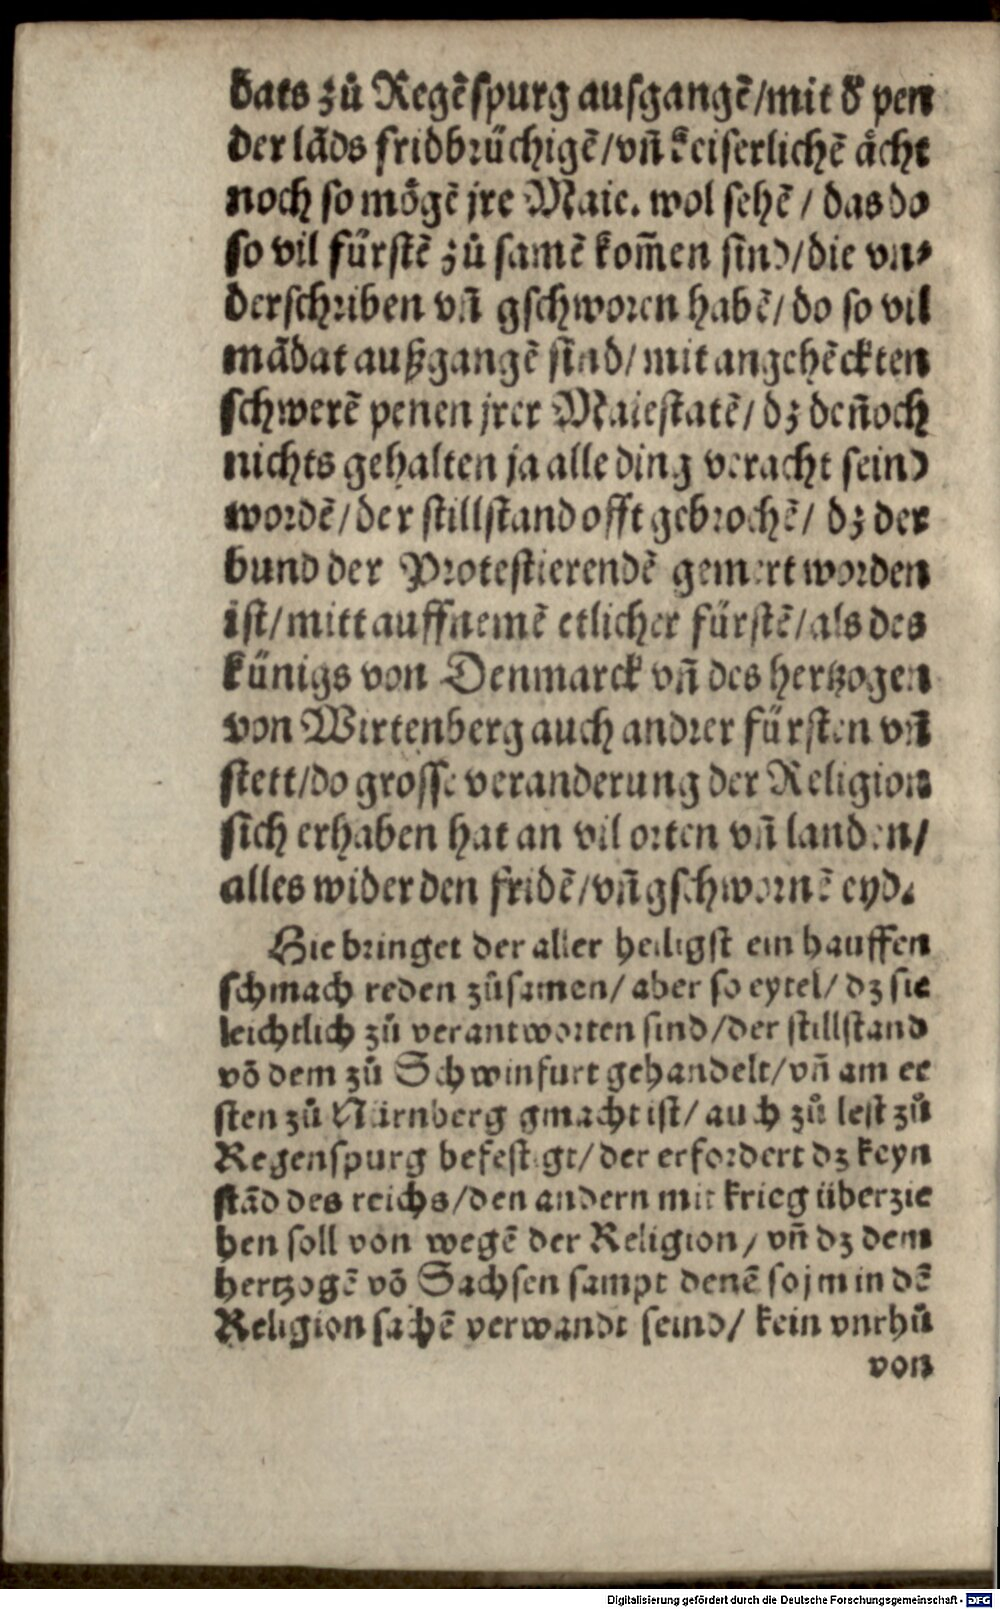 dats zů Regẽspurg ausgangẽ/mit ď pen
der lãds fridbrüchigẽ/vñ keiserlichẽ ächt
noch so mögẽ jre Maie. wol sehẽ / das do
so vil fürstẽ zů samẽ kom̃en sind/die vn⸗
derschriben vñ gschworen habẽ/ do so vil
mãdat außgangẽ sind/ mit angehẽckten
schwerẽ penen jrer Maiestatẽ/ dz deñoch
nichts gehalten ja alle ding veracht seind
wordẽ/der stillstand offt gebrochẽ/ dz der
bund der Protestierendẽ gemert worden
ist/mitt auffnemẽ etlicher fürstẽ/als des
künigs von Denmarck vñ des hertzogen
von Wirtenberg auch andrer fürsten vñ
stett/do grosse veranderung der Religion
sich erhaben hat an vil orten vñ landen/
alles wider den fridẽ/vñ gschwornẽ eyd.
Hie bringet der aller heiligst ein hauffen
schmach reden zůsamen/ aber so eytel/ dz sie
leichtlich zů verantworten sind/der stillstand
võ dem zů Schwinfurt gehandelt/vñ am er
sten zů Nürnberg gmacht ist/ auch zů lest zů
Regenspurg befestigt/der erfordert dz keyn
stãd des reichs/den andern mit krieg überzie
hen soll von wegẽ der Religion/ vñ dz dem
hertzogẽ võ Sachsen sampt denẽ so jm in dẽ
Religion sachẽ verwandt seind/ kein vnrhů
von
Digitalisierung gefördert durch die Deutsche Forschungsgemeinschaft - DFG